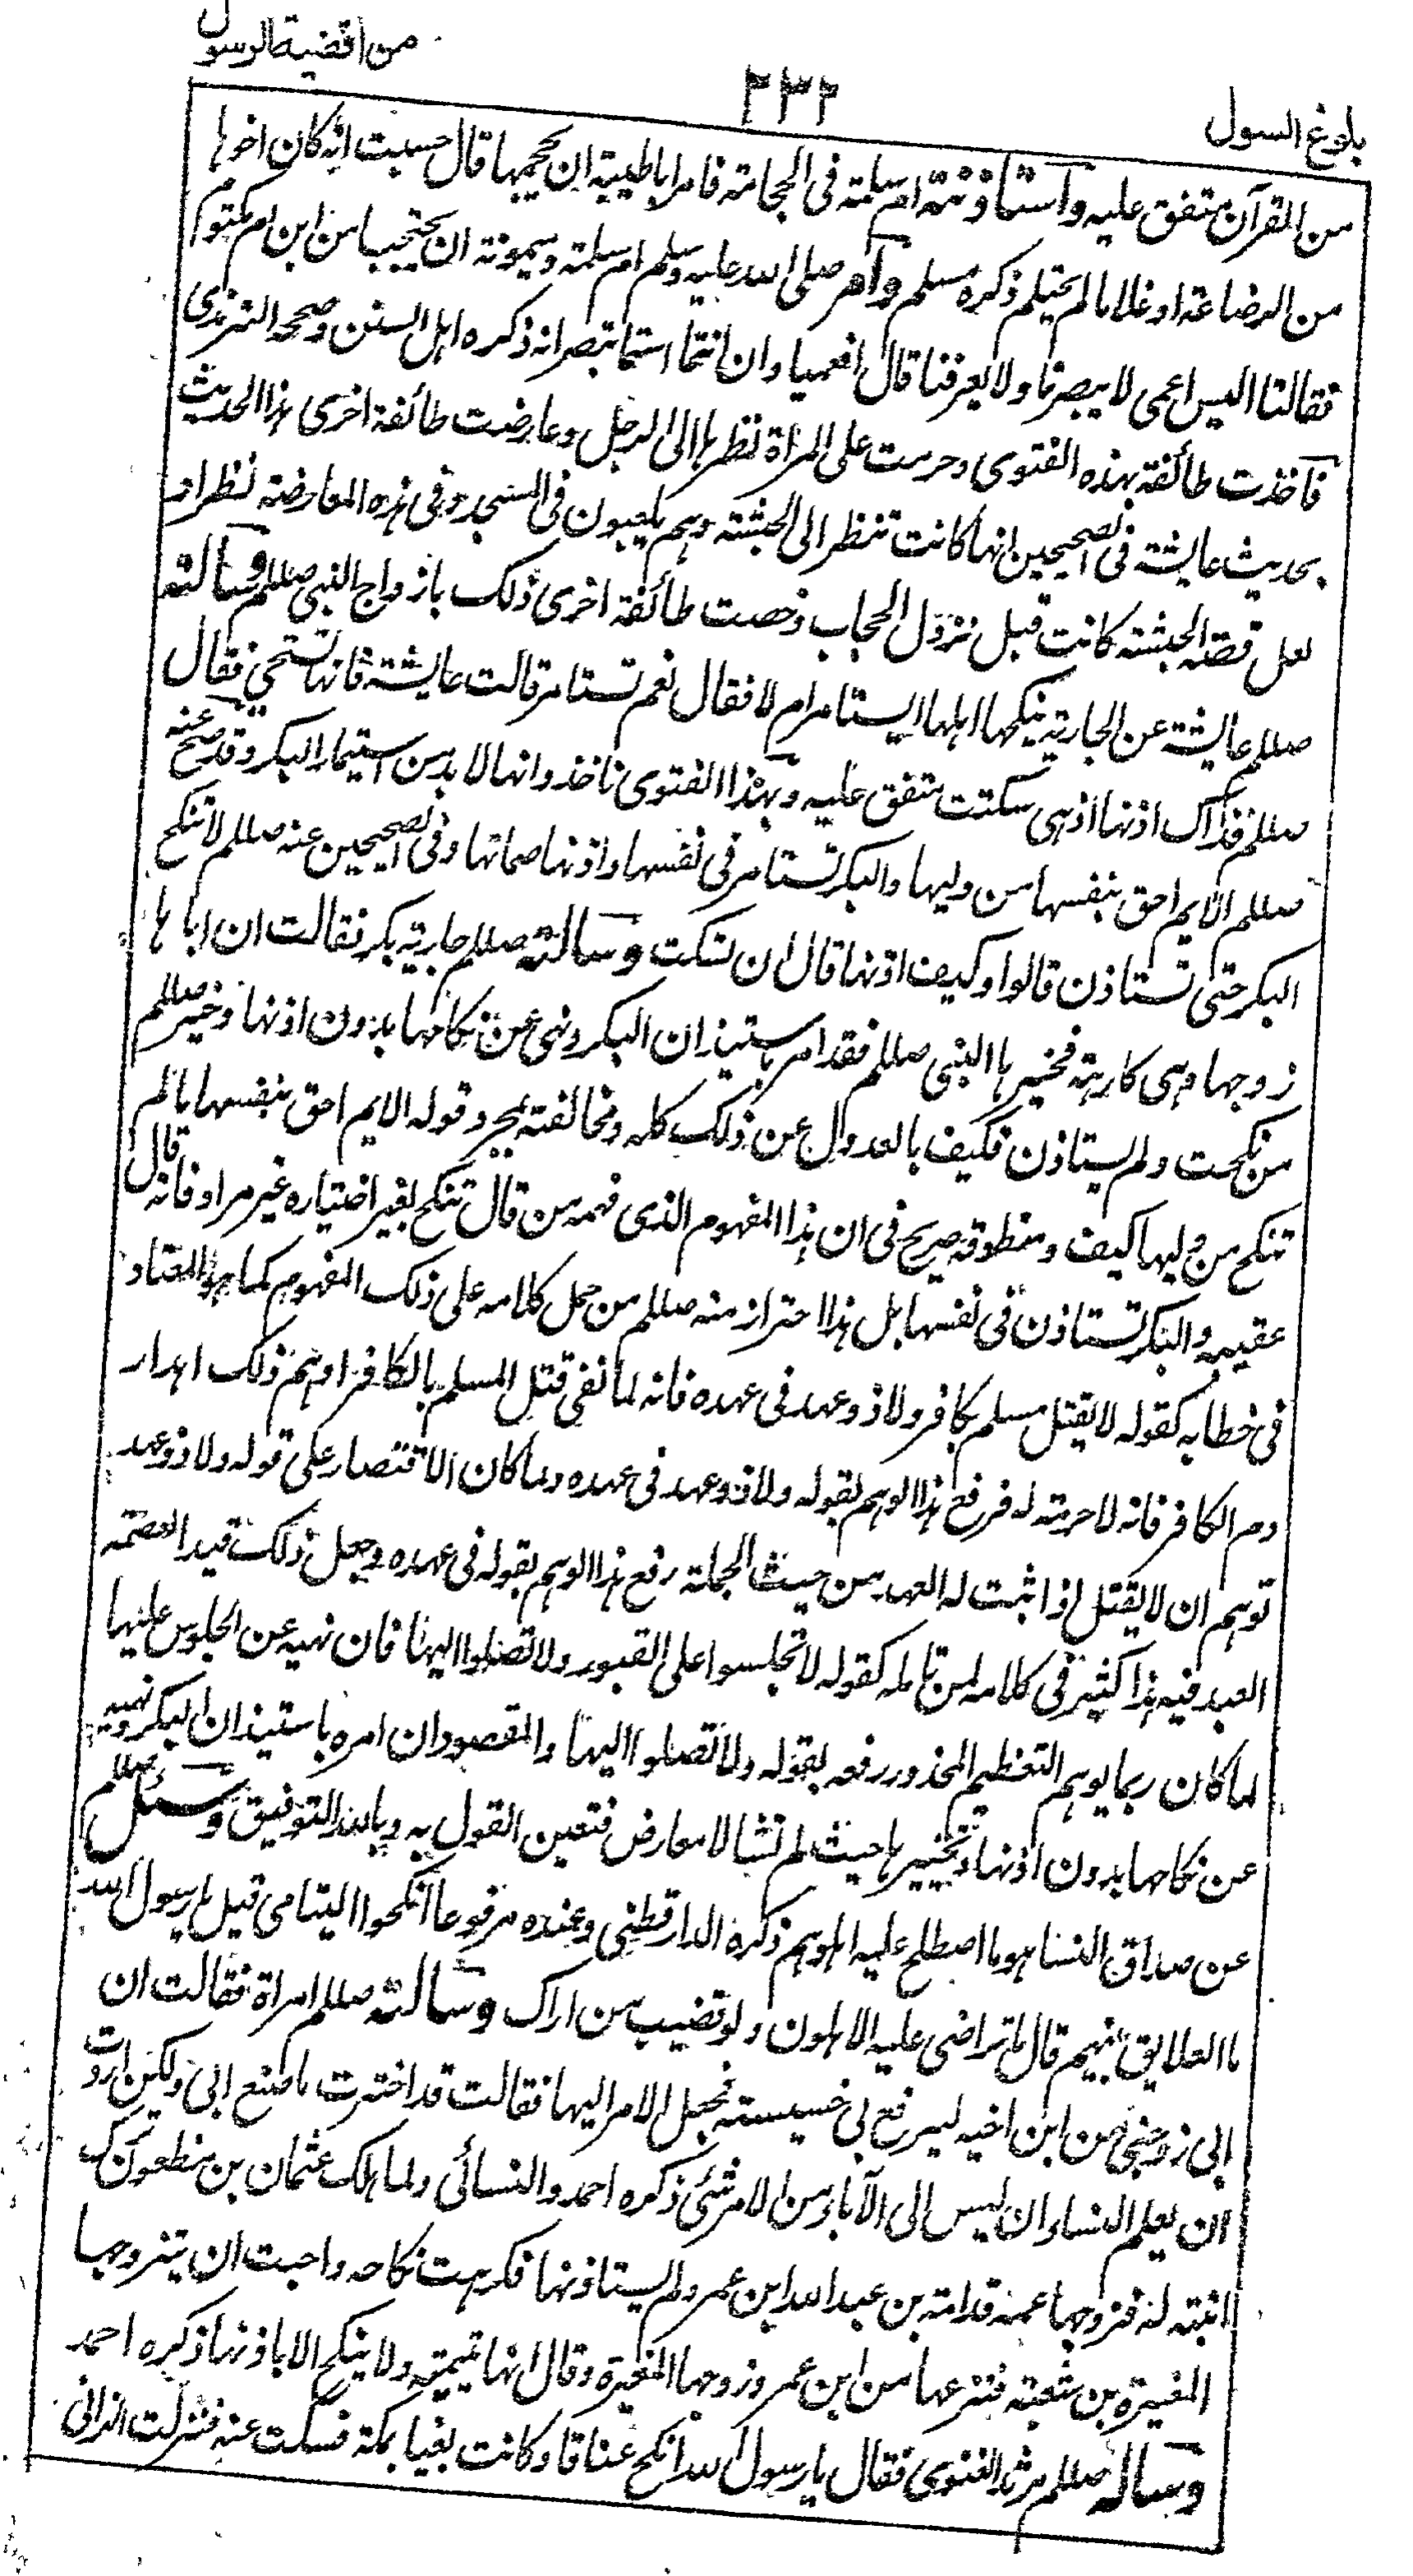 من اقضية الرسول
٢٣٢
بلوغ السول
من القرآن متفق عليه واستأذنته ام سلمة فى الحجامة فامر اباطيبة ان يحجمها قال حسبت انه كان اخوها
من الرضاعة او غلاما لم يحتلم ذكره مسلم وامر صلى الله عليه وسلم ام سلمة وميمونة ان يحتجبا من ابن ام مكتوم
فقالتا اليس اعمى لا يبصرنا ولا يعرفنا قال افعمياوان انتما الستما تبصرانه ذكره اهل السنن وصححه الترمذى
فاخذت طائفة بهذه الفتوى وحرمت على المرأة نظرها الى الرجل وعارضت طائفة اخرى هذا الحديث
بحديث عايشة فى الصحيحين انها كانت تنظر الى الحبشة وهم يلعبون فى المسجد وفى هذه المعارضة نظر اذ
لعل قصة الحبشة كانت قبل نزول الحجاب وخصت طائفة اخرى ذلك بازواج النبى صللم وسالته
صللم عايشة عن الجارية ينكحها اهلها ايستامرام لا فقال نعم تستامر قالت عايشة فانها تستحي فقال
صللم فذاك اذنها اذ هى سكتت متفق عليه وبهذا الفتوى ناخذ وانها لا بد من استيمار البكر وقد صح عنه
صللم الايم احق بنفسها من وليها والبكر تستامر فى نفسها واذنها صماتها وفى الصحيحين عنه صللم لا تنكح
البكر حتى تستاذن قالوا وكيف اذنها قال ان تسكت وسالته صللم جارية بكر فقالت ان اباها
زوجها وهى كارهة فخيرها النبى صللم فقد امر باستيذان البكر ونهى عن نكاحها بدون اذنها وخير صللم
من نكحت ولم يستاذن فكيف بالعدول عن ذلك كله ومخالفته بمجرد قوله الايم احق بنفسها ما لم
تنكح من وليها كيف ومنطوقه صريح فى ان هذا المفهوم الذى فهمه من قال تنكح بغير اختياره غير مراد فانه قال
عقيبه والبكر تستاذن فى نفسها بل هذا احتراز منه صللم من حمل كلامه على ذلك المفهوم كما هو المعتاد
فى خطابه كقوله لا يقتل مسلم بكافر ولا ذو عهد فى عهده فانه لما نفى قتل المسلم بالكافر اوهم ذلك اهدار
دم الكافر فانه لا حرمة له فرفع هذا الوهم بقوله ولا ذو عهد فى عهده ولما كان الاقتصار على قوله ولا ذو عهد
توهم ان لا يقتل اذا ثبت له العهد من حيث الجملة رفع هذا الوهم بقوله فى عهده وجعل ذلك قيد العصمة
العهد فيه هذا كثير فى كلامه لمن تامله كقوله لا تجلسوا على القبور ولا تصلوا اليها فان نهيه عن الجلوس عليها
لما كان ربما يوهم التعظيم المحذور رفعه بقوله ولا تصلوا اليها والمقصود ان امره باستيذان البكر ونهيه
عن نكاحها بدون اذنها وتخييرها حيث لم تشا لا معارض فتعين القول به وبالله التوفيق وسئل صللم
عن صداق النسا هو ما اصطلح عليه اهلوهم ذكره الدارقطنى وعنده مرفوعا انكحوا اليتامى قيل يا رسول الله
ما العلايق بينهم قال ما تراضى عليه الاهلون ولو قضيب من اراك وسالته صللم امراة فقالت ان
ابى زوجنى من ابن اخيه ليرفع بى خسيسته فجعل الامر اليها فقالت قد اخترت ما صنع ابى ولكن اردت
ان يعلم النساء ان ليس الى الآباء من الامر شئ ذكره احمد والنسائى ولما هلك عثمان بن مظعون ترك
ابنته له فزوجها عمه قدامة بن عبد الله ابن عمر ولم يستاذنها فكرهت نكاحه واحبت ان يتزوجها
المغيرة بن شعبة فنزعها من ابن عمر وزوجها المغيرة وقال انها يتيمة ولا ينكح الا باذنها ذكره احمد
وساله صللم مرثد الغنوى فقال يا رسول الله انكح عناقا وكانت بغيا بمكة فسكت عنه فنزلت الزانى